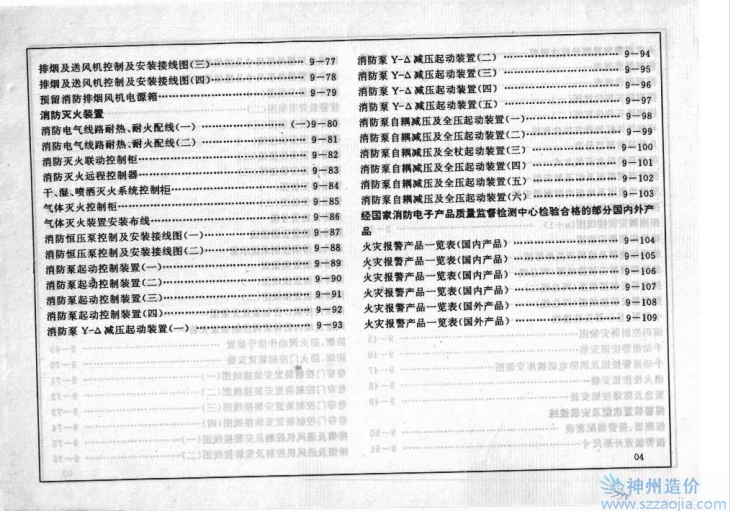 排烟及送风机控制及安装接线图(三)………………… 9—77
排烟及送风机控制及安装接线图(四)………………… 9—78
预留消防排烟风机电源箱………………… 9—79
消防灭火装置
消防电气线路耐热、耐火配线(一)………………… (一)9—80
消防电气线路耐热、耐火配线(二)………………… 9—81
消防灭火联动控制柜………………… 9—82
消防灭火远程控制器………………… 9—83
干、湿、喷洒灭火系统控制柜………………… 9—84
气体灭火控制柜………………… 9—85
气体灭火装置安装布线………………… 9—86
消防恒压泵控制及安装接线图(一)………………… 9—87
消防恒压泵控制及安装接线图(二)………………… 9—88
消防泵起动控制装置(一)………………… 9—89
消防泵起动控制装置(二)………………… 9—90
消防泵起动控制装置(三)………………… 9—91
消防泵起动控制装置(四)………………… 9—92
消防泵 Y-Δ 减压起动装置(一)………………… 9—93
消防泵 Y-Δ 减压起动装置(二)………………… 9—94
消防泵 Y-Δ 减压起动装置(三)………………… 9—95
消防泵 Y-Δ 减压起动装置(四)………………… 9—96
消防泵 Y-Δ 减压起动装置(五)………………… 9—97
消防泵自耦减压及全压起动装置(一)………………… 9—98
消防泵自耦减压及全压起动装置(二)………………… 9—99
消防泵自耦减压及全杖起动装置(三)………………… 9—100
消防泵自耦减压及全压起动装置(四)………………… 9—101
消防泵自耦减压及全压起动装置(五)………………… 9—102
消防泵自耦减压及全压起动装置(六)………………… 9—103
经国家消防电子产品质量监督检测中心检验合格的部分国内外产
品
火灾报警产品一览表(国内产品)………………… 9—104
火灾报警产品一览表(国内产品)………………… 9—105
火灾报警产品一览表(国内产品)………………… 9—106
火灾报警产品一览表(国内产品)………………… 9—107
火灾报警产品一览表(国外产品)………………… 9—108
火灾报警产品一览表(国外产品)………………… 9—109
04
神州造价
www.szzaojia.com